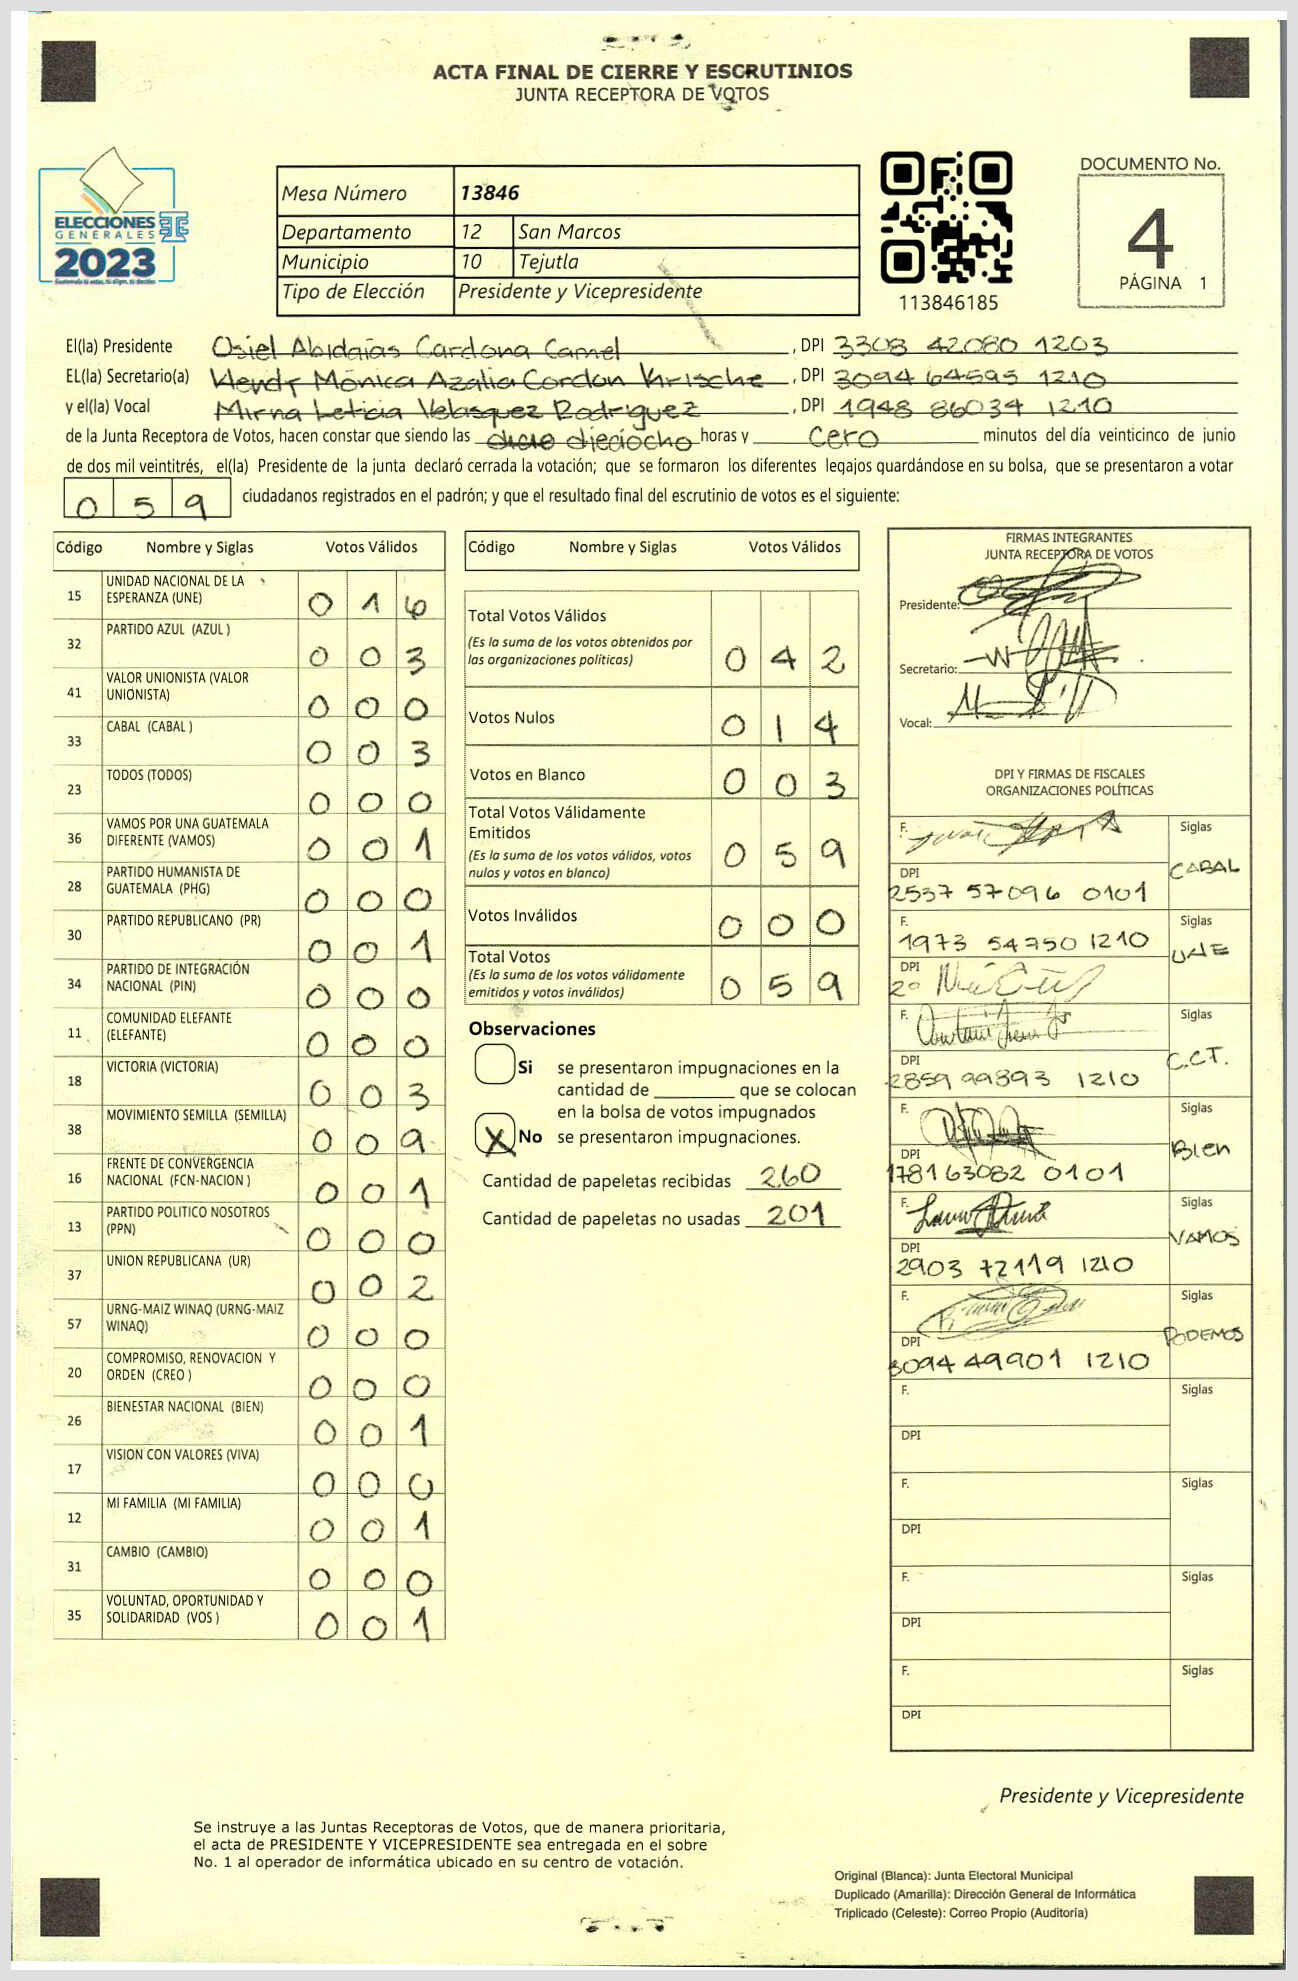 ACTA FINAL DE CIERRE Y ESCRUTINIOS
JUNTA RECEPTORA DE VOTOS
ELECCIONES
GENERALES
2023
Mesa Número 13846
Departamento 12 San Marcos
Municipio 10 Tejutla
Tipo de Elección Presidente y Vicepresidente
113846185
DOCUMENTO No.
4
PÁGINA 1
El(la) Presidente Osiel Abidaías Cardona Camel, DPI 3308 42080 1203
EL(la) Secretario(a) Wendy Mónica Azalia Cordon Krische, DPI 3094 64595 1210
y el(la) Vocal Mirna Leticia Velasquez Rodriguez, DPI 1948 86034 1210
de la Junta Receptora de Votos, hacen constar que siendo las dieciocho horas y cero minutos del día veinticinco de junio
de dos mil veintitrés, el(la) Presidente de la junta declaró cerrada la votación; que se formaron los diferentes legajos guardándose en su bolsa, que se presentaron a votar
059 ciudadanos registrados en el padrón; y que el resultado final del escrutinio de votos es el siguiente:
Código Nombre y Siglas Votos Válidos
15 UNIDAD NACIONAL DE LA
ESPERANZA (UNE) 0 1 6
32 PARTIDO AZUL (AZUL ) 0 0 3
41 VALOR UNIONISTA (VALOR
UNIONISTA) 0 0 0
33 CABAL (CABAL ) 0 0 3
23 TODOS (TODOS) 0 0 0
36 VAMOS POR UNA GUATEMALA
DIFERENTE (VAMOS) 0 0 1
28 PARTIDO HUMANISTA DE
GUATEMALA (PHG) 0 0 0
30 PARTIDO REPUBLICANO (PR) 0 0 1
34 PARTIDO DE INTEGRACIÓN
NACIONAL (PIN) 0 0 0
11 COMUNIDAD ELEFANTE
(ELEFANTE) 0 0 0
18 VICTORIA (VICTORIA) 0 0 3
38 MOVIMIENTO SEMILLA (SEMILLA) 0 0 9
16 FRENTE DE CONVERGENCIA
NACIONAL (FCN-NACION ) 0 0 1
13 PARTIDO POLITICO NOSOTROS
(PPN) 0 0 0
37 UNION REPUBLICANA (UR) 0 0 2
57 URNG-MAIZ WINAQ (URNG-MAIZ
WINAQ) 0 0 0
20 COMPROMISO, RENOVACION Y
ORDEN (CREO ) 0 0 0
26 BIENESTAR NACIONAL (BIEN) 0 0 1
17 VISION CON VALORES (VIVA) 0 0 0
12 MI FAMILIA (MI FAMILIA) 0 0 1
31 CAMBIO (CAMBIO) 0 0 0
35 VOLUNTAD, OPORTUNIDAD Y
SOLIDARIDAD (VOS ) 0 0 1
Código Nombre y Siglas Votos Válidos
Total Votos Válidos
(Es la suma de los votos obtenidos por
las organizaciones políticas) 0 4 2
Votos Nulos 0 1 4
Votos en Blanco 0 0 3
Total Votos Válidamente
Emitidos
(Es la suma de los votos válidos, votos
nulos y votos en blanco) 0 5 9
Votos Inválidos 0 0 0
Total Votos
(Es la suma de los votos válidamente
emitidos y votos inválidos) 0 5 9
Observaciones
Si se presentaron impugnaciones en la
cantidad de ________ que se colocan
en la bolsa de votos impugnados
X No se presentaron impugnaciones.
Cantidad de papeletas recibidas 260
Cantidad de papeletas no usadas 201
FIRMAS INTEGRANTES
JUNTA RECEPTORA DE VOTOS
Presidente:
Secretario:
Vocal:
DPI Y FIRMAS DE FISCALES
ORGANIZACIONES POLÍTICAS
F. Siglas
CABAL
DPI
2537 57096 0101
F. Siglas
1973 54750 1210
UNE
DPI
F. Siglas
C.C.T.
DPI
2859 99893 1210
F. Siglas
Bien
DPI
1781 63082 0101
F. Siglas
VAMOS
DPI
2903 72119 1210
F. Siglas
PODEMOS
DPI
3094 49901 1210
F. Siglas
DPI
F. Siglas
DPI
F. Siglas
DPI
F. Siglas
DPI
Presidente y Vicepresidente
Se instruye a las Juntas Receptoras de Votos, que de manera prioritaria,
el acta de PRESIDENTE Y VICEPRESIDENTE sea entregada en el sobre
No. 1 al operador de informática ubicado en su centro de votación.
Original (Blanca): Junta Electoral Municipal
Duplicado (Amarilla): Dirección General de Informática
Triplicado (Celeste): Correo Propio (Auditoría)